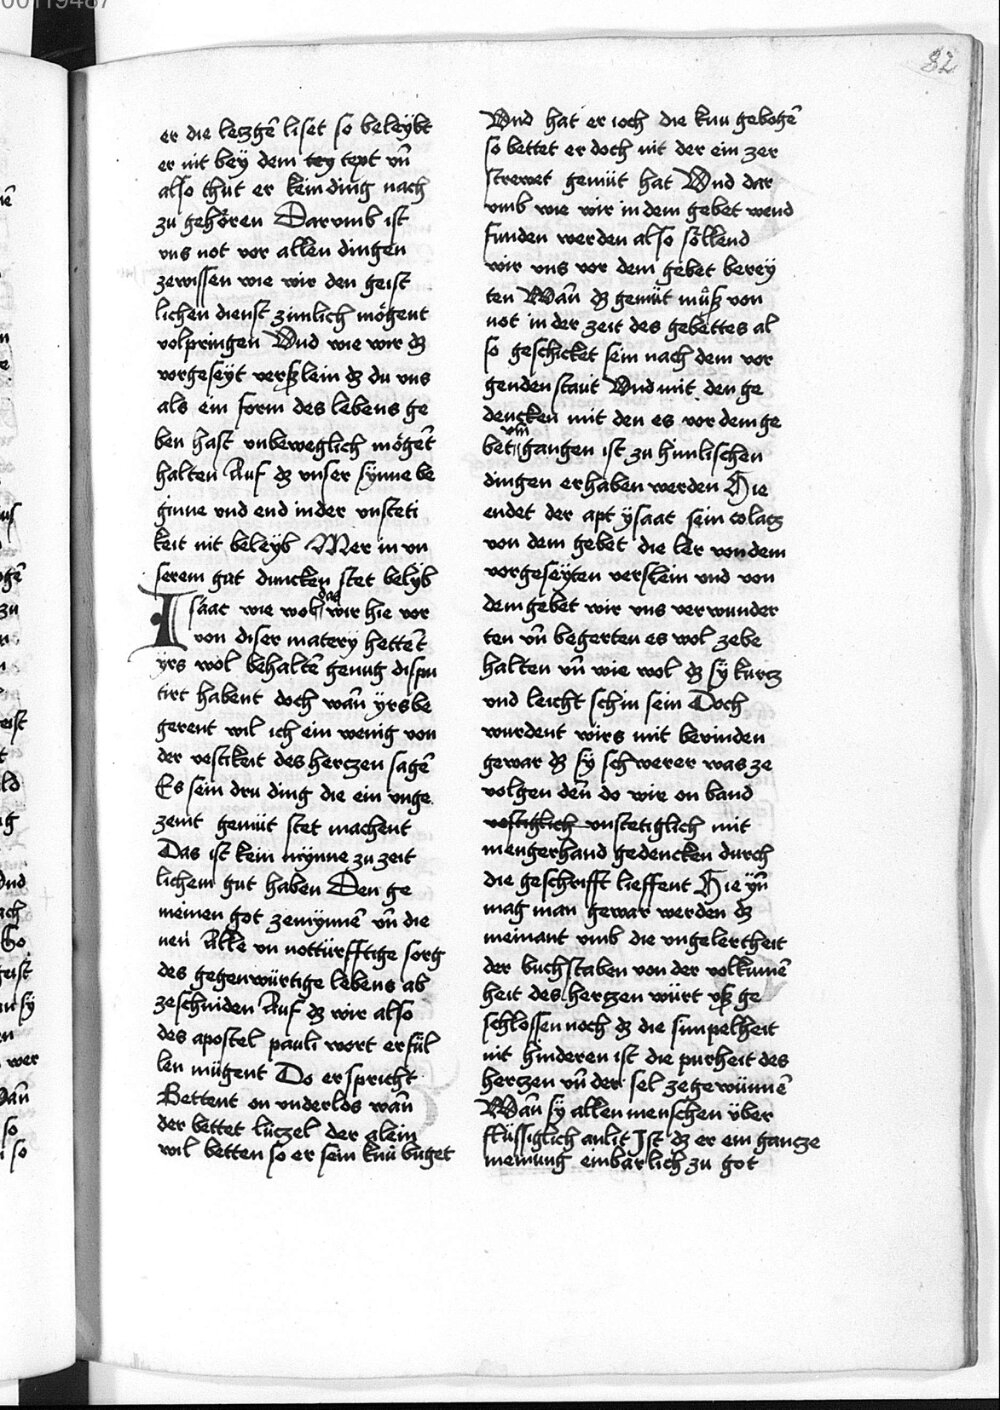 00119487
82
er die letzgē liset so beleÿbt
er nit beÿ dem tex text vn̄
also thut er kein ding nach
zu gehören Darvmb ist
vns not vor allen dingen
zewissen wie wir den geist
lichen dienst zimlich mögent
volpringen Vnd wie wir dz
vorgeseÿt verßlein dz du vns
als ein form des lebens ge
ben hast vnbeweglich mögēt
halten Auf dz vnser sÿnne be
ginne vnd end in der vnsteti
keit nit beleÿb Mer in vn
serem gut duncken stet belÿb
Isaac wie wol das wir hie vor
von diser matery hettēt
ÿrs wol behaltē genug dispu
tirt habent doch wan̄ ÿrs be
gerent wil ich ein wenig von
der vestikeit des hertzen sagē
Es sein dru ding die ein vnge
zemt gemüt stet machent
Das ist kein mÿnne zu zeit
lichem gut haben Den ge
meinen got zemÿnnē vn̄ die
nen Alle vn nottürfftige sorg
des gegenwürtige lebens ab
zeschniden Auf dz wir also
des apostel pauli wort erfül
len mügent Do er spricht
Bettent on vnderlos wan̄
der bettet lüczel der alein
wil betten so er sein knü buget
Vnd hat er ioch die knu gebogē
so bettet er doch nit der ein zer
strewet gemüt hat Vnd dar
vmb wie wir in dem gebet wend
funden werden also söllend
wir vns vor dem gebet bereÿ
ten Wan̄ dz gemüt müß von
not in der zeit des gebettes al
so geschicket sein nach dem vor
genden staut Vnd mit den ge
dencken mit den es vor dem ge
bet vm gangen ist zu himlischen
dingen erhaben werden Hie
endet der apt ÿsaac sein colatz
von dem gebet die ler von dem
vorgeseÿten verslein vnd von
dem gebet wir vns verwunder
ten vn̄ begerten es wol zebe
halten vn̄ wie wol dz sÿ kurcz
vnd leicht schin sein Doch
wurdent wirs mit bevinden
gewar dz sÿ schwerer was ze
volgen den̄ do wir on band
vestiglich vnstetiglich mit
mengerhand gedencken durch
die geschrifft lieffent Hie ÿn̄
mag man gewar werden dz
meinant vmb die vngelertheit
der buchstaben von der volkumē
heit des hertzen würt vß ge
schlossen noch dz die simpelheit
nit hinderen ist die purheit des
hertzen vn̄ der sel zegewünnē
Wan̄ sÿ allen menschen über
flüssiglich anlit Ist dz er ein gancze
meinung einbarlich zu got